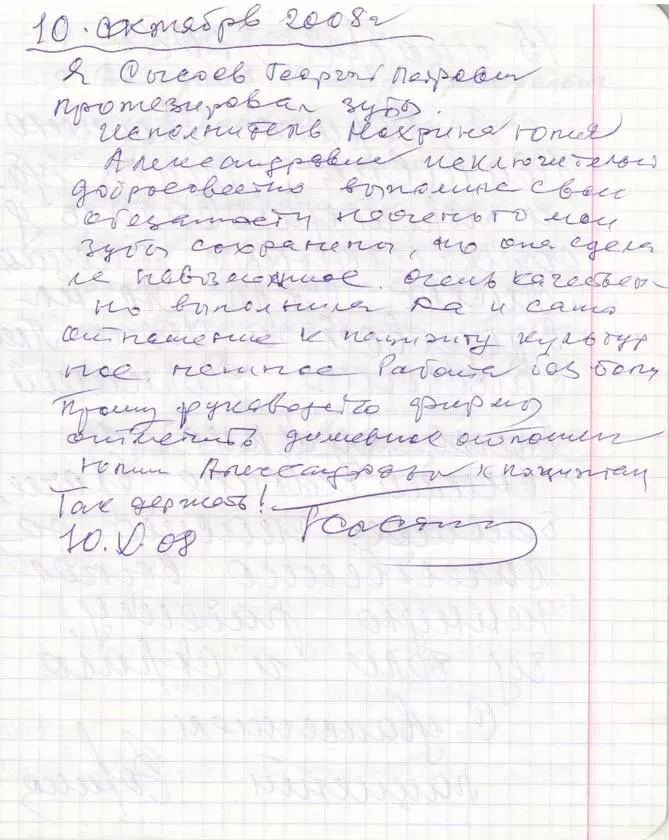 10. октября 2008г
Я Сысоев Георгий Петрович
протезировал зубы.
исполнитель Мохрина Юлия
Александровна исключительно
добросовестно выполнила свои
обязаности не очень то мои
зубы сохранены, но она сдела
ла невозможное. очень качествен-
но выполнила Да и само
отношение к пациэнту культур
ное, нежное Работа без боли
Прошу руководство фирмы
отметить душевное отношен
Юлии Александровны к пациэнтам
Так держать!
10.X.08